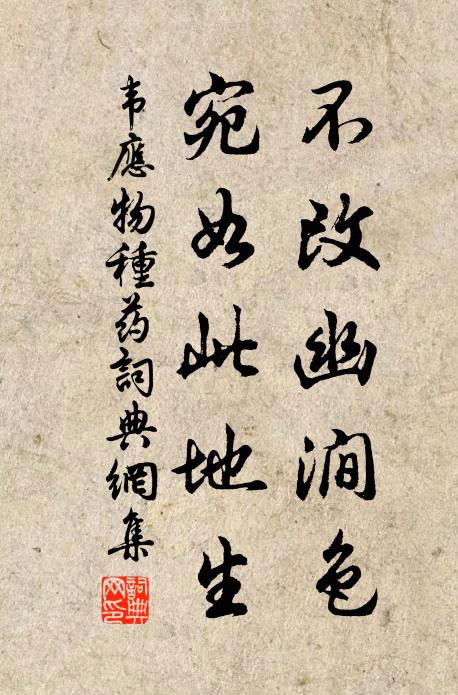 不改幽澗色
宛如此地生
韦應物種药詞典網集
詞典网印